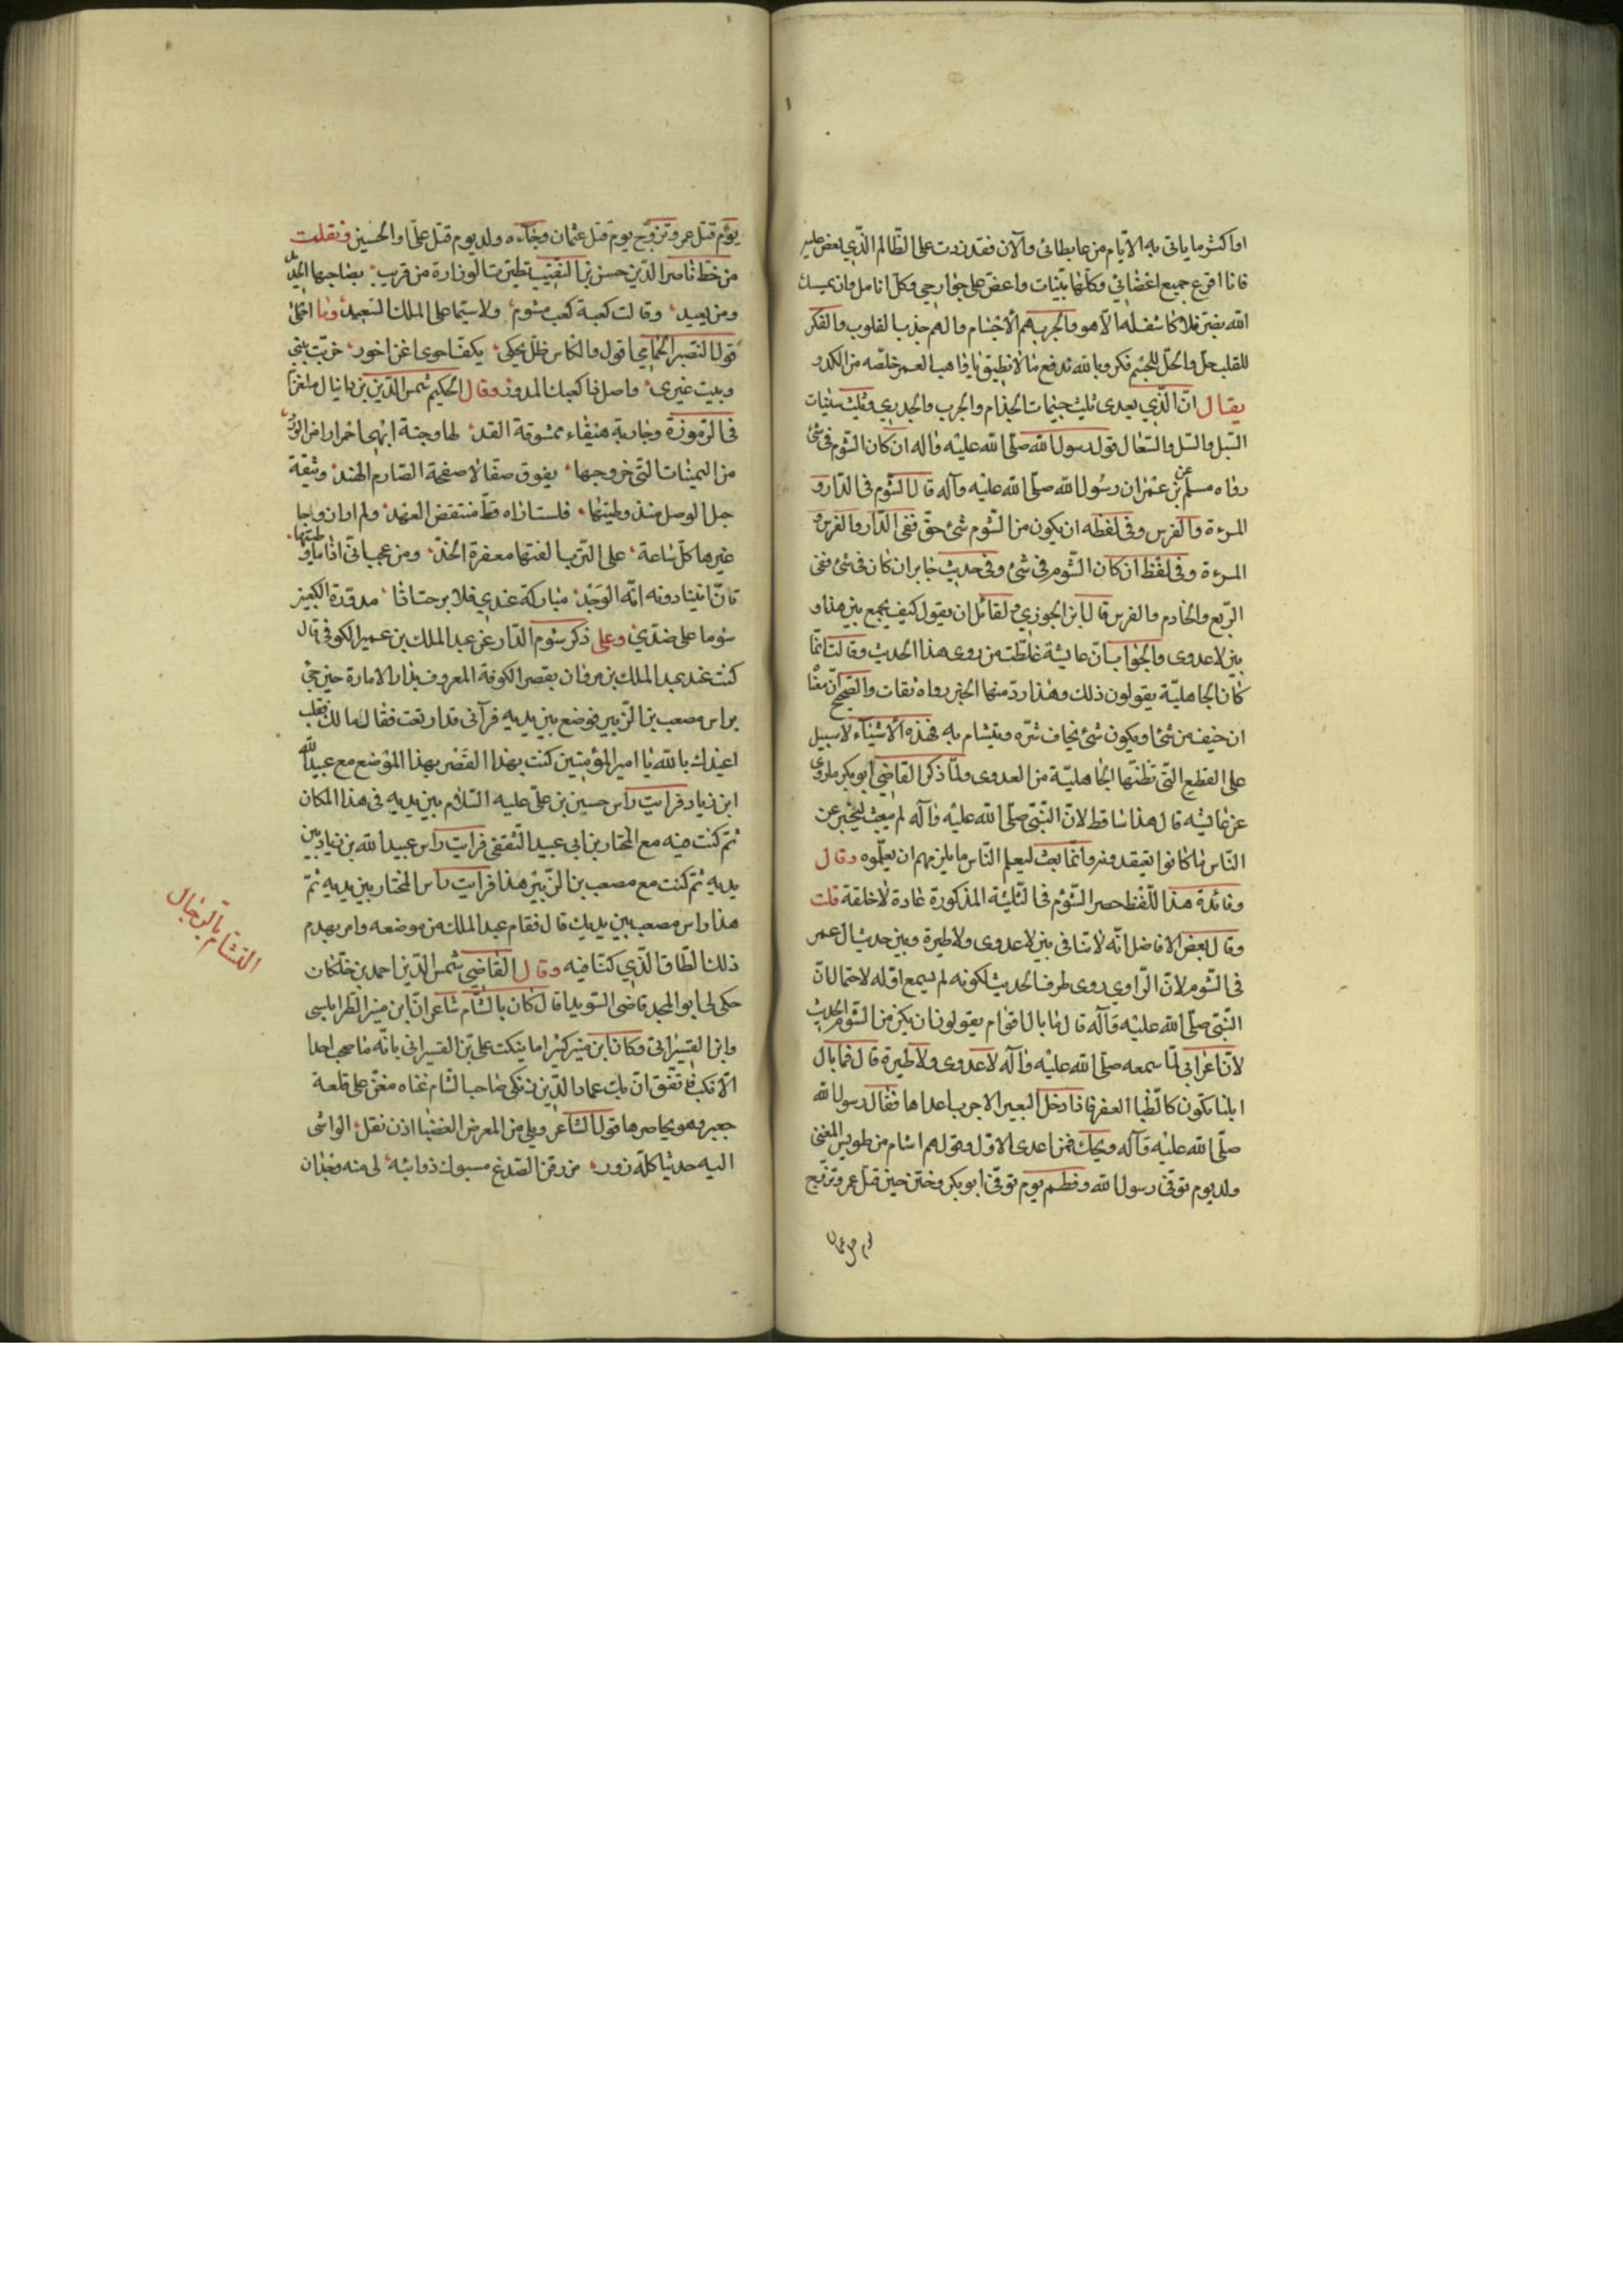 اواكثر ما ياتى به الايام من عابطائى والآن فقد زدت على الظالم الذى بعض عليه
فانا اقرع جميع اعضائى وكلها بتينات واعض على جوارحى وكل انامل وان يمسسك
الله بضر فلا كاشف له الا هو والجرب هم الاجسام والهم جذب القلوب والفكر
للقلب جل والحل للجسم فكر وبالله ندفع ما لا نطيق يا واهب العمر خلصه من الكدر
يقال ان الذى يعدى ثلث جيمات الجذام والجرب والجدرى وثلث سينات
السبل والسل والسعال قول رسول الله صلى الله عليه وآله ان كان الشوم فى شئ
رواه مسلم عن بن عمران رسول الله صلى الله عليه وآله قال الشوم فى الدار و
المرءة والفرس وفى لفظه ان يكون من الشوم شئ حق ففى الدار والفرس و
المرءة وفى لفظ ان كان الشوم فى شئ وفى حديث جابر ان كان فى شئ ففى
الربع والخادم والفرس قال ابن الجوزى ولقائل ان يقول كيف يجمع بين هذا و
بين لا عدوى والجواب ان عايشة غلطت من روى هذا الحديث وقالت انما
كان الجاهلية يقولون ذلك وهذا رد منها الخبر رواه ثقات والصحيح ان معنا
ان خيف من شئ او يكون شئ يخاف شره ويتشام به فهذه الاشياء لا سبيل
على القطيع التى تظنها الجاهلية من العدوى ولما ذكر القاضى ابو بكر ما روى
عن عايشه قال هذا ساقط لان النبى صلى الله عليه وآله لم يبعث ليخبر عن
الناس ما كانوا يعتقدونه وانما بعث ليعلم الناس ما يلزمهم ان يعلموه وقال
وفائدة هذا اللفظ حصر الشؤم فى الثلثة المذكورة عادة لا خلقة قلت
وقال بعض الافاضل انه لا تنافى بين لا عدوى ولا طيرة وبين حديث ال عمر
فى الشوم لان الراوى روى طرف الحديث لكونه لم يسمع اوله لاحتمال ان
النبى صلى الله عليه وآله قال ما بال اقوام يقولون ان يكن من الشوم الحديث
لان اعرابى لما سمعه صلى الله عليه وآله لا عدوى ولا طيرة قال فما بال
ابلنا تكون كالظبا العفر فاذا دخل البعير الاجرب اعداها فقال رسول الله
صلى الله عليه وآله ويحك فمن اعدى الاول وقولهم اشام من طويس المغنى
ولد يوم توفى رسول الله وفطم يوم توفى ابو بكر وختن حين قتل عمر وتزوج
يوم قتل عمر وتزوج يوم قتل عثمان وجاءه ولد يوم قتل على او الحسين ونقلت
من خط ناصر الدين حسن بن النقيب تطيرت الوزارة من قريب بصاحبها الجديد
ومن بعيد وقالت كعبة كعب مشوم ولا سيما على الملك السعيد وما احلى
قول النصير الحمامى اقول والكاس ظل يحكى بكف احوى اغن احور خربت بيتى
وبيت غيرى واصل ذا كعبك المدور وقال الحكيم شمس الدين بن دانيال ملغزا
فى الرموزة وجارية هيفاء ممشوقة القد لها وجنة ابهى احمرارا من الورد
من اليمنات التى خر وجهها يفوق صقالا صفحة الصارم الهند وثيقة
حبل الوصل منذ وطيتها فلست اراه قط منتقض العهد ولم ار ان واجا
غيرها كل ساعة على الترب الفتها معفرة الخد ومن عجب انى اذا ما وطيتها
تان انينا دونه انة الوجد مباركة عندى فلا برحت اذا مدورة الكعبين
شوما على ضدى وعلى ذكر شوم الدار عن عبد الملك بن عمير الكوفى قال
كنت عند عبد الملك بن مروان بقصر الكوفة المعروف بدار الامارة حين جئ
براس مصعب بن الزبير فوضع بين يديه فرآنى قد ارتعت فقال مالك فقلت
اعيذك بالله يا امير المؤمنين كنت بهذا القصر بهذا الموضع مع عبيد الله
ابن زياد فرايت راس حسين بن على عليه السلام بين يديه فى هذا المكان
ثم كنت فيه مع المختار بن ابى عبيد الثقفى فرايت راس عبيد الله بن زياد بين
يديه ثم كنت مع مصعب بن الزبير هذا فرايت راس المختار بين يديه ثم
هذا راس مصعب بين يديك قال فقام عبد الملك من موضعه وامر بهدم
ذلك الطاق الذى كنا فيه وقال القاضى شمس الدين احمد بن خلكان
حكى لى ابو المجد قاضى السويدا قال كان بالشام شاعران ابن منير الطرابلسى
وابن القيسرانى وكان ابن منير كثيرا ما ينكت على ابن القيسرانى بانه ما صحب احدا
الا نكب فاتفق ان اتابك عماد الدين زنكى صاحب الشام غناه مغن على قلعة
جعبر وهو يحاصرها قول الشاعر ويلى من المعرض الغضبا اذن نقل الواشى
اليه حديثا كله زور مزرفن الصدغ مسبول ذوائبه لى منه وجدان
التشام بالرجال